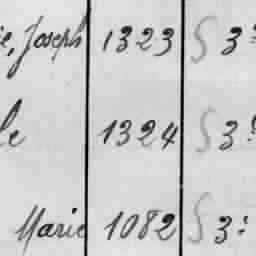 ie, Joseph 1323 § 3:
le 1324 § 3:
Marie 1082 § 3: